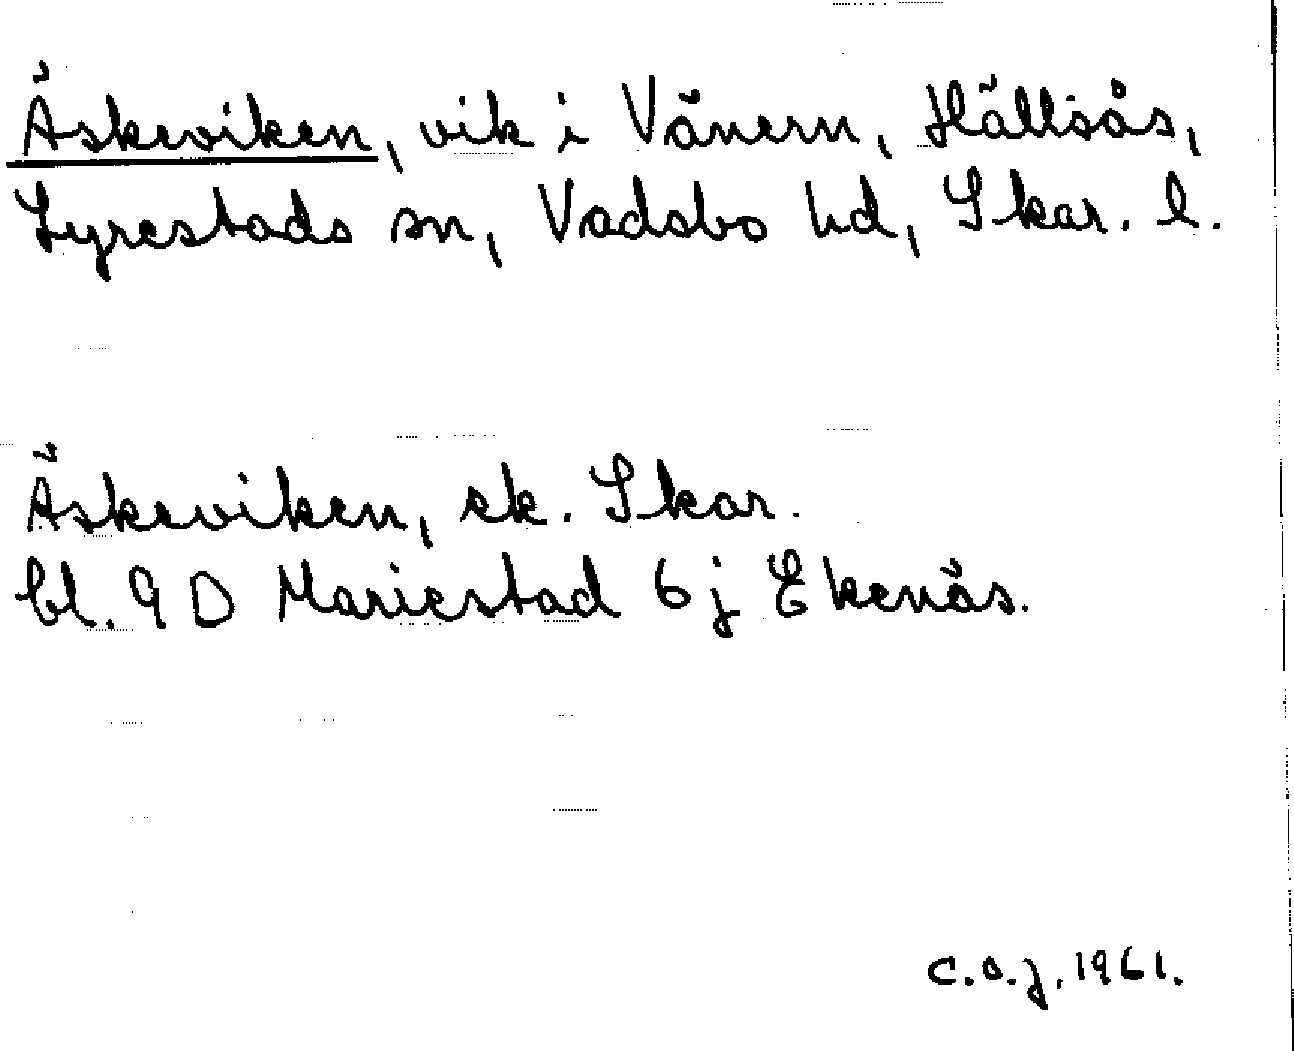 Äskeviken, vik i Vänern, Hällsås,
Lyrestads sn, Vadsbo hd, Skar. l.
Äskeviken, ek. Skar.
bl. 9 D Mariestad 6 j Ekenäs.
C.O.J. 1961.